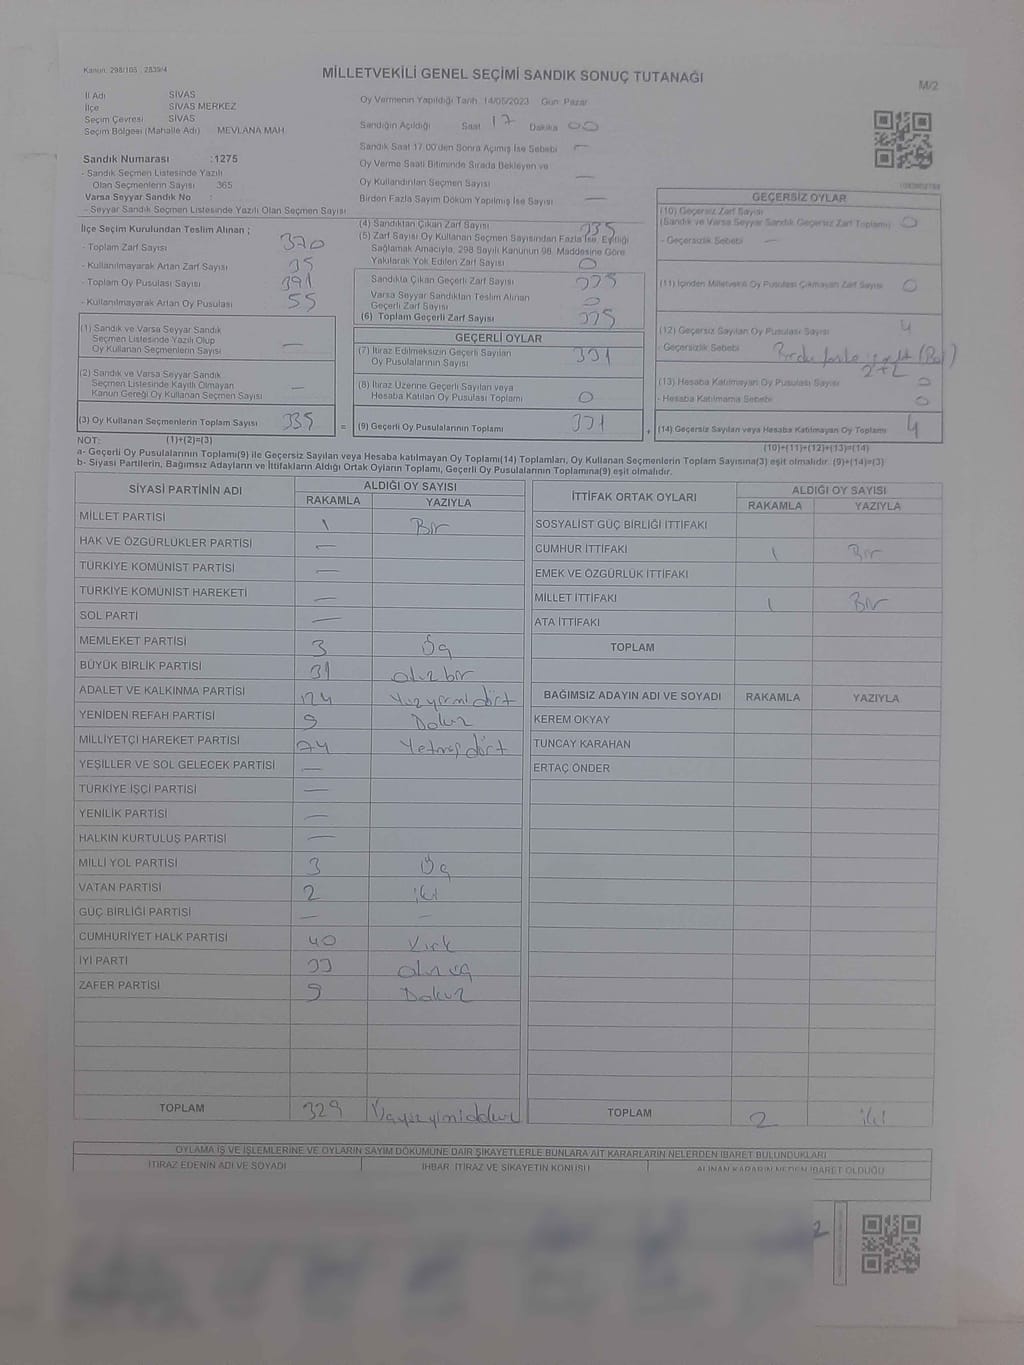 Kanun: 298/105 , 2839/4
MİLLETVEKİLİ GENEL SEÇİMİ SANDIK SONUÇ TUTANAĞI
M/2
İl Adı SİVAS
İlçe SİVAS MERKEZ
Seçim Çevresi SİVAS
Seçim Bölgesi (Mahalle Adı) MEVLANA MAH.
Sandık Numarası :1275
- Sandık Seçmen Listesinde Yazılı
Olan Seçmenlerin Sayısı 365
Varsa Seyyar Sandık No :
- Seyyar Sandık Seçmen Listesinde Yazılı Olan Seçmen Sayısı
İlçe Seçim Kurulundan Teslim Alınan ;
- Toplam Zarf Sayısı 370
- Kullanılmayarak Artan Zarf Sayısı 35
- Toplam Oy Pusulası Sayısı 391
- Kullanılmayarak Artan Oy Pusulası 55
(1) Sandık ve Varsa Seyyar Sandık
Seçmen Listesinde Yazılı Olup
Oy Kullanan Seçmenlerin Sayısı —
(2) Sandık ve Varsa Seyyar Sandık
Seçmen Listesinde Kayıtlı Olmayan
Kanun Gereği Oy Kullanan Seçmen Sayısı —
(3) Oy Kullanan Seçmenlerin Toplam Sayısı 335
Oy Vermenin Yapıldığı Tarih: 14/05/2023 Gün: Pazar
Sandığın Açıldığı Saat 17 Dakika 00
Sandık Saat 17:00'den Sonra Açımış İse Sebebi —
Oy Verme Saati Bitiminde Sırada Bekleyen ve
Oy Kullandırılan Seçmen Sayısı —
Birden Fazla Sayım Döküm Yapılmış İse Sayısı —
(4) Sandıktan Çıkan Zarf Sayısı 335
(5) Zarf Sayısı Oy Kullanan Seçmen Sayısından Fazla İse, Eşitliği
Sağlamak Amacıyla, 298 Sayılı Kanunun 98. Maddesine Göre
Yakılarak Yok Edilen Zarf Sayısı 0
Sandıkta Çıkan Geçerli Zarf Sayısı 335
Varsa Seyyar Sandıktan Teslim Alınan
Geçerli Zarf Sayısı 0
(6) Toplam Geçerli Zarf Sayısı 335
GEÇERLİ OYLAR
(7) İtiraz Edilmeksizin Geçerli Sayılan
Oy Pusulalarının Sayısı 331
(8) İtiraz Üzerine Geçerli Sayılan veya
Hesaba Katılan Oy Pusulası Toplamı 0
= (9) Geçerli Oy Pusulalarının Toplamı 331
GEÇERSİZ OYLAR
(10) Geçersiz Zarf Sayısı
(Sandık ve Varsa Seyyar Sandık Geçersiz Zarf Toplamı) 0
- Geçersizlik Sebebi —
(11) İçinden Milletvekili Oy Pusulası Çıkmayan Zarf Sayısı 0
(12) Geçersiz Sayılan Oy Pusulası Sayısı 4
- Geçersizlik Sebebi
(13) Hesaba Katılmayan Oy Pusulası Sayısı 0
- Hesaba Katılmama Sebebi 0
+ (14) Geçersiz Sayılan veya Hesaba Katılmayan Oy Toplamı 4
NOT: (1)+(2)=(3)
(10)+(11)+(12)+(13)=(14)
a- Geçerli Oy Pusulalarının Toplamı(9) ile Geçersiz Sayılan veya Hesaba katılmayan Oy Toplamı(14) Toplamları, Oy Kullanan Seçmenlerin Toplam Sayısına(3) eşit olmalıdır. (9)+(14)=(3)
b- Siyasi Partilerin, Bağımsız Adayların ve İttifakların Aldığı Ortak Oyların Toplamı, Geçerli Oy Pusulalarının Toplamına(9) eşit olmalıdır.
SİYASİ PARTİNİN ADI ALDIĞI OY SAYISI
RAKAMLA YAZIYLA
MİLLET PARTİSİ 1 Bir
HAK VE ÖZGÜRLÜKLER PARTİSİ —
TÜRKİYE KOMÜNİST PARTİSİ —
TÜRKİYE KOMÜNİST HAREKETİ —
SOL PARTİ —
MEMLEKET PARTİSİ 3 Üç
BÜYÜK BİRLİK PARTİSİ 31 otuz bir
ADALET VE KALKINMA PARTİSİ 124 Yüzyirmi dört
YENİDEN REFAH PARTİSİ 9 Dokuz
MİLLİYETÇİ HAREKET PARTİSİ 74 Yetmiş dört
YEŞİLLER VE SOL GELECEK PARTİSİ —
TÜRKİYE İŞÇİ PARTİSİ —
YENİLİK PARTİSİ —
HALKIN KURTULUŞ PARTİSİ —
MİLLİ YOL PARTİSİ 3 Üç
VATAN PARTİSİ 2 iki
GÜÇ BİRLİĞİ PARTİSİ — —
CUMHURİYET HALK PARTİSİ 40 Kırk
İYİ PARTİ 33 otuz üç
ZAFER PARTİSİ 9 Dokuz
TOPLAM 329 Üçyüzyirmidokuz
İTTİFAK ORTAK OYLARI ALDIĞI OY SAYISI
RAKAMLA YAZIYLA
SOSYALİST GÜÇ BİRLİĞİ İTTİFAKI
CUMHUR İTTİFAKI 1 Bir
EMEK VE ÖZGÜRLÜK İTTİFAKI
MİLLET İTTİFAKI 1 Bir
ATA İTTİFAKI
TOPLAM
BAĞIMSIZ ADAYIN ADI VE SOYADI RAKAMLA YAZIYLA
KEREM OKYAY
TUNCAY KARAHAN
ERTAÇ ÖNDER
TOPLAM 2 iki
OYLAMA İŞ VE İŞLEMLERİNE VE OYLARIN SAYIM DÖKÜMÜNE DAİR ŞİKAYETLERLE BUNLARA AİT KARARLARIN NELERDEN İBARET BULUNDUKLARI
İTİRAZ EDENİN ADI VE SOYADI İHBAR, İTİRAZ VE ŞİKAYETİN KONUSU ALINAN KARARIN NEDEN İBARET OLDUĞU